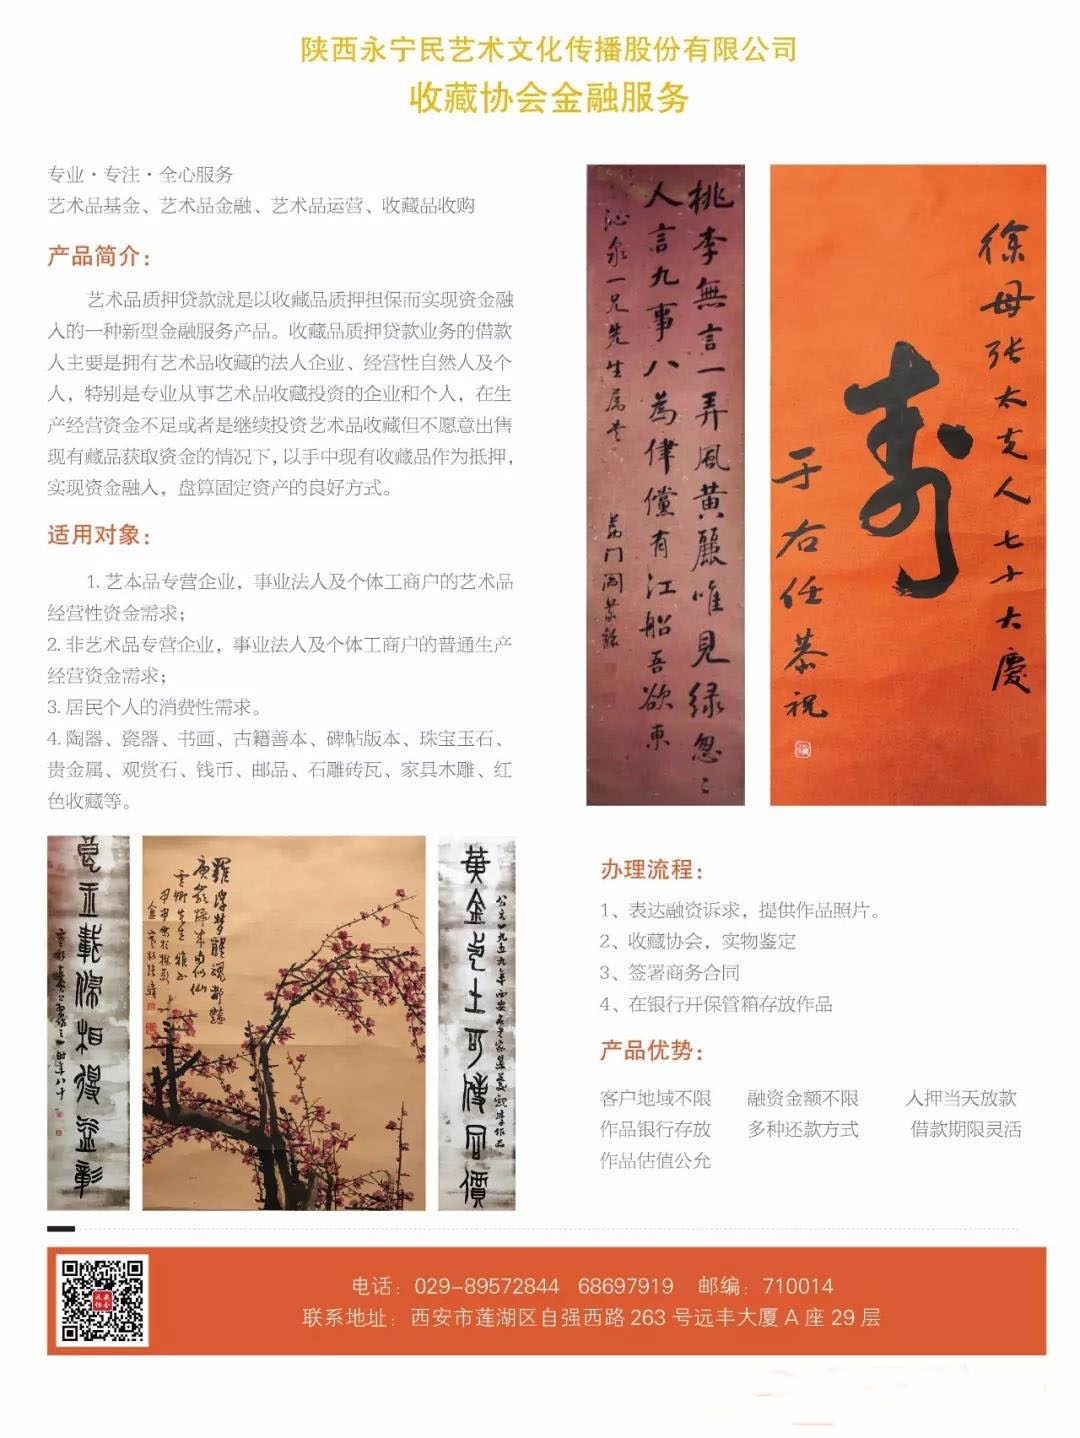 陕西永宁民艺术文化传播股份有限公司
收藏协会金融服务
专业·专注·全心服务
艺术品基金、艺术品金融、艺术品运营、收藏品收购
产品简介：
艺术品质押贷款就是以收藏品质押担保而实现资金融
入的一种新型金融服务产品。收藏品质押贷款业务的借款
人主要是拥有艺术品收藏的法人企业、经营性自然人及个
人，特别是专业从事艺术品收藏投资的企业和个人，在生
产经营资金不足或者是继续投资艺术品收藏但不愿意出售
现有藏品获取资金的情况下，以手中现有收藏品作为抵押，
实现资金融入，盘算固定资产的良好方式。
适用对象：
1. 艺本品专营企业，事业法人及个体工商户的艺术品
经营性资金需求；
2. 非艺术品专营企业，事业法人及个体工商户的普通生产
经营资金需求；
3. 居民个人的消费性需求。
4. 陶器、瓷器、书画、古籍善本、碑帖版本、珠宝玉石、
贵金属、观赏石、钱币、邮品、石雕砖瓦、家具木雕、红
色收藏等。
桃李無言一弄風黄麗唯見绿忽〻
人言九事八為律儻有江船吾欲東
沁泉一兄先生属
徐母张太夫人七十大慶
寿
于右任恭祝
黄金
土可
同價
載
相得益彰
办理流程：
1、表达融资诉求，提供作品照片。
2、收藏协会，实物鉴定
3、签署商务合同
4、在银行开保管箱存放作品
产品优势：
客户地域不限 融资金额不限 入押当天放款
作品银行存放 多种还款方式 借款期限灵活
作品估值公允
电话：029-89572844 68697919 邮编：710014
联系地址：西安市莲湖区自强西路 263 号远丰大厦 A 座 29 层